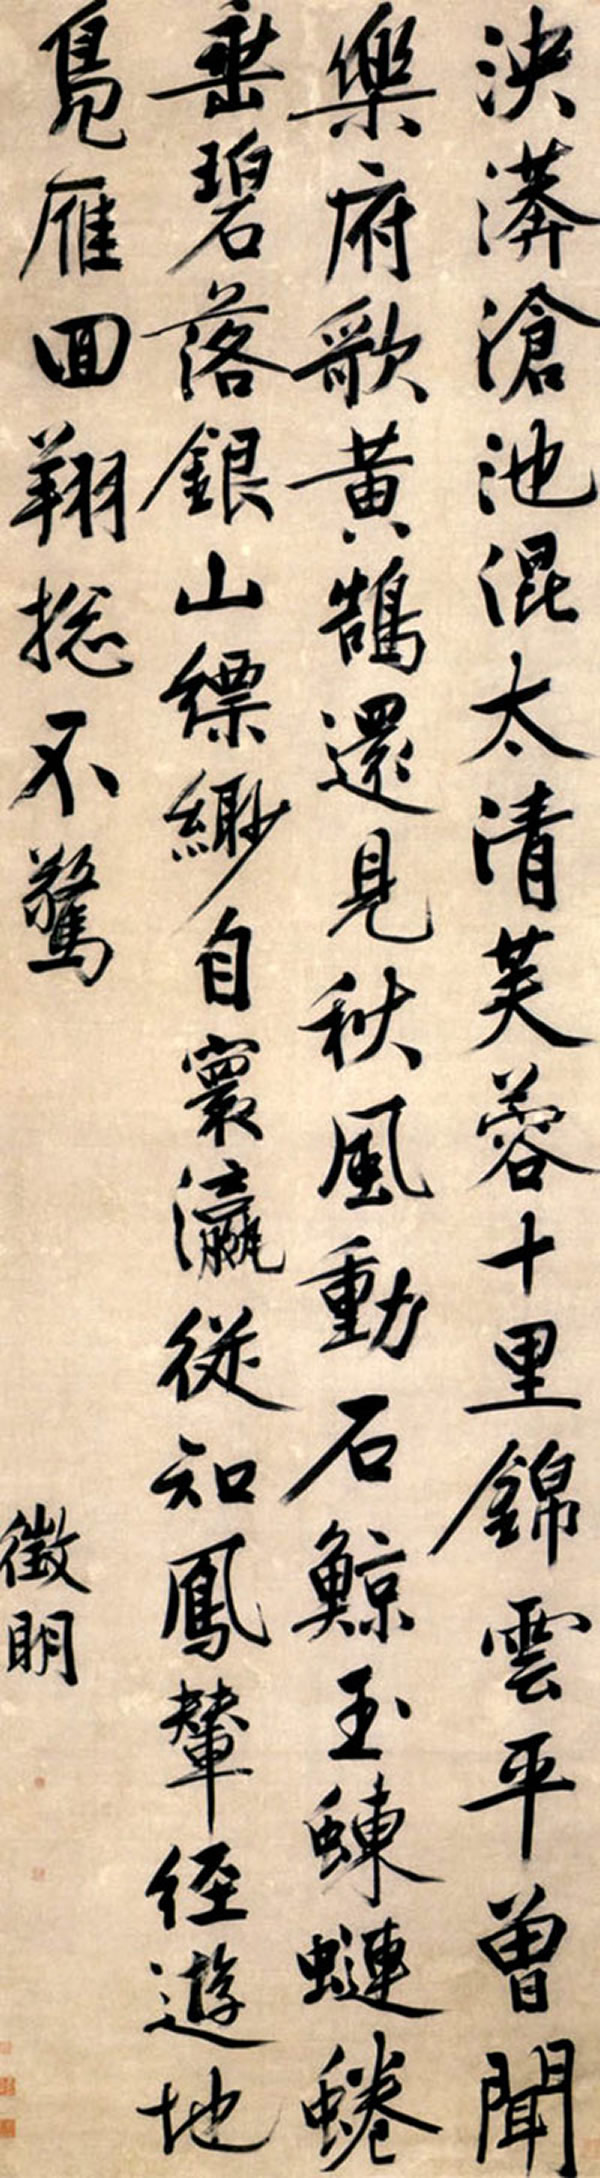 泱漭滄池混太清芙蓉十里錦雲平曾聞
樂府歌黃鵠還見秋風動石鯨玉蝀䗴蜷
垂碧落銀山縹緲自寰瀛從知鳳輦經遊地
鳧雁回翔捴不驚
徵明